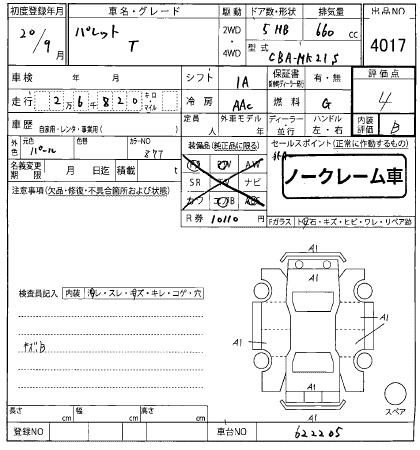 初度登録年月
車名・グレード
駆動
ドア数・形状
排気量
出品NO
20/9月
パレット
T
2WD
4WD
5HB
660
cc
型式
CBA-MK21S
4017
車検
年 月
シフト
IA
保証書
有・無
評価点
4
走行
26820
キロ・マイル
冷房
AAC
燃料
G
車歴
自家用・レンタ・事業用( )
定員
人
外車モデル
年
ディーラー
並行
ハンドル
左・右
内装評価
B
外色
元色
パール
色替
カラーNO
877
装備品(純正品に限る)
セールスポイント(正常に作動するもの)
名義変更期限
月 日迄
積載
t
SR
ナビ
ノークレーム車
注意事項(欠品・修復・不具合箇所および状態)
R券
10110
円
Fガラス
石・キズ・ヒビ・ワレ・リペア跡
A1
A1
A1
A1
A1
検査員記入
内装
汚レ・スレ・キズ・キレ・コゲ・穴
キズB
スペア
長さ
cm
幅
cm
高さ
cm
登録NO
車台NO
622205